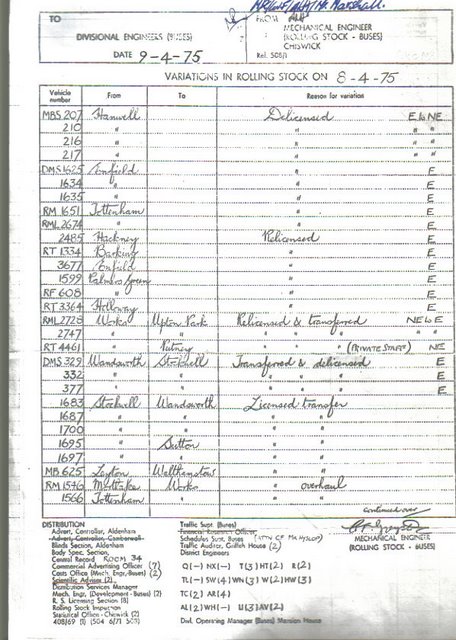 TO
DIVISIONAL ENGINEERS (BUSES)
DATE 9-4-75
FROM
MECHANICAL ENGINEER
(ROLLING STOCK - BUSES)
CHISWICK
Ref. 508/1
VARIATIONS IN ROLLING STOCK ON 8-4-75
Vehicle number From To Reason for variation
MBS 207 Hanwell Delicensed E to NE
210 " " " "
216 " " " "
217 " " " "
DMS 1625 Enfield " E
1634 " " E
1635 " " E
RM 1651 Tottenham " E
RML 2674 " " E
2485 Hackney Relicensed E
RT 1334 Barking " E
3677 Enfield " E
1599 Palmers Green " E
RF 608 " " E
RT 3364 Holloway " E
RML 2728 Works Upton Park Relicensed & transferred NE to E
2747 " " " " " " "
RT 4461 " Putney " " " (PRIVATE STAFF) NE
DMS 329 Wandsworth Stockwell Transferred & delicensed E
332 " " " " " E
377 " " " " " E
1683 Stockwell Wandsworth Licensed transfer
1687 " " " "
1700 " " " "
1695 " Sutton " "
1697 " " " "
MB 625 Leyton Walthamstow " "
RM 1546 Mortlake Works " overhaul
1566 Tottenham " " "
continued over
DISTRIBUTION
Advert. Controller, Aldenham
Advert. Controller, Camberwell
Blinds Section, Aldenham
Body Spec. Section,
Central Record ROOM 34
Commercial Advertising Officer (7)
Costs Office (Mech. Engr. Buses) (2)
Scientific Adviser (2)
Distribution Services Manager
Mech. Engr. (Development - Buses) (2)
R. S. Licensing Section (8)
Rolling Stock Inspection
Statistical Office - Chiswick (2)
Traffic Supt. (Buses)
Schedules Supt. Buses
Traffic Auditor, Griffith House (2)
District Engineers
Q(-) NX(-) T(3) HT(2) R(2)
TL(-) SW(4) WN(3) W(2) HW(3)
TC(2) AR(4)
AL(2) WH(-) U(3) AV(2)
Divl. Operating Manager (Buses) Mansion House
MECHANICAL ENGINEER
(ROLLING STOCK - BUSES)